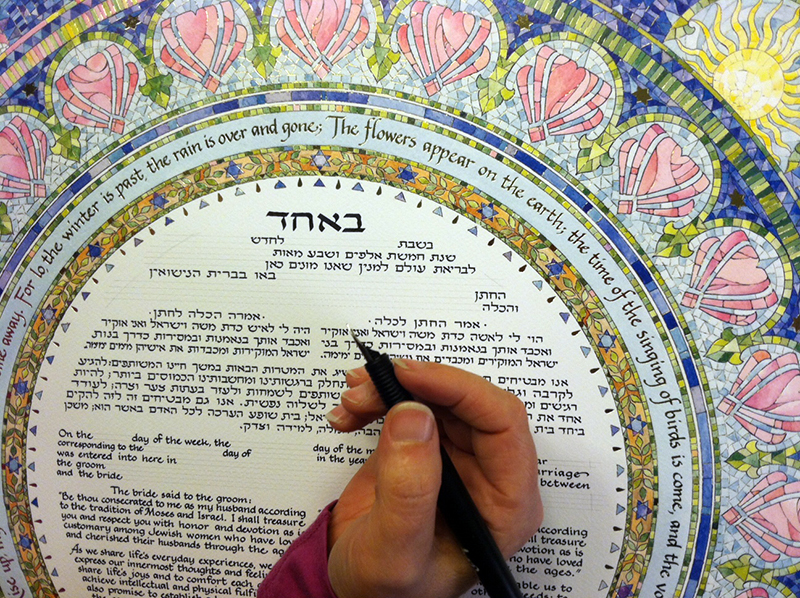 away. For lo, the winter is past, the rain is over and gone; The flowers appear on the earth; the time of the singing of birds is come, and the
באחד
בשבת לחדש
שנת חמשת אלפים ושבע מאות
לבריאת עולם למנין שאנו מונים כאן
באו בברית הנישואין
החתן
והכלה
· אמר החתן לכלה ·
הוי לי לאשה כדת משה וישראל ואני אוקיר
ואכבד אותך בנאמנות ובמסירות כדרך בני
ישראל המוקירים ומכבדים את
· אמרה הכלה לחתן ·
היה לי לאיש כדת משה וישראל ואני אוקיר
ואכבד אותך בנאמנות ובמסירות כדרך בנות
ישראל המוקירות ומכבדות את אישיהן מימים ימימה.
אנו מבטיחים את המטרות הבאות במשך חיינו המשותפים: להגיע
לקרבה ברגשותינו ומחשבותינו הכמוסים ביותר; להיות
רגישים לשמחות ולעזר בעת צער וצרה; לעודד
אחד את לשלוה נפשית. אנו גם מבטיחים זה לזה להקים
ביחד בית שופע הערכה לכל האדם באשר הוא; משכן
למידה וצדק.
On the day of the week, the day of the
corresponding to the day of in the year
was entered into here in
the groom
and the bride
between
The bride said to the groom:
"Be thou consecrated to me as my husband according
to the tradition of Moses and Israel. I shall treasure
you and respect you with honor and devotion as is
customary among Jewish women who have
and cherished their husbands through the
according
shall treasure
devotion as is
the ages."
As we share life's everyday experiences, we
express our innermost thoughts and
share life's joys and to comfort each
achieve intellectual and physical
also promise to
able us to